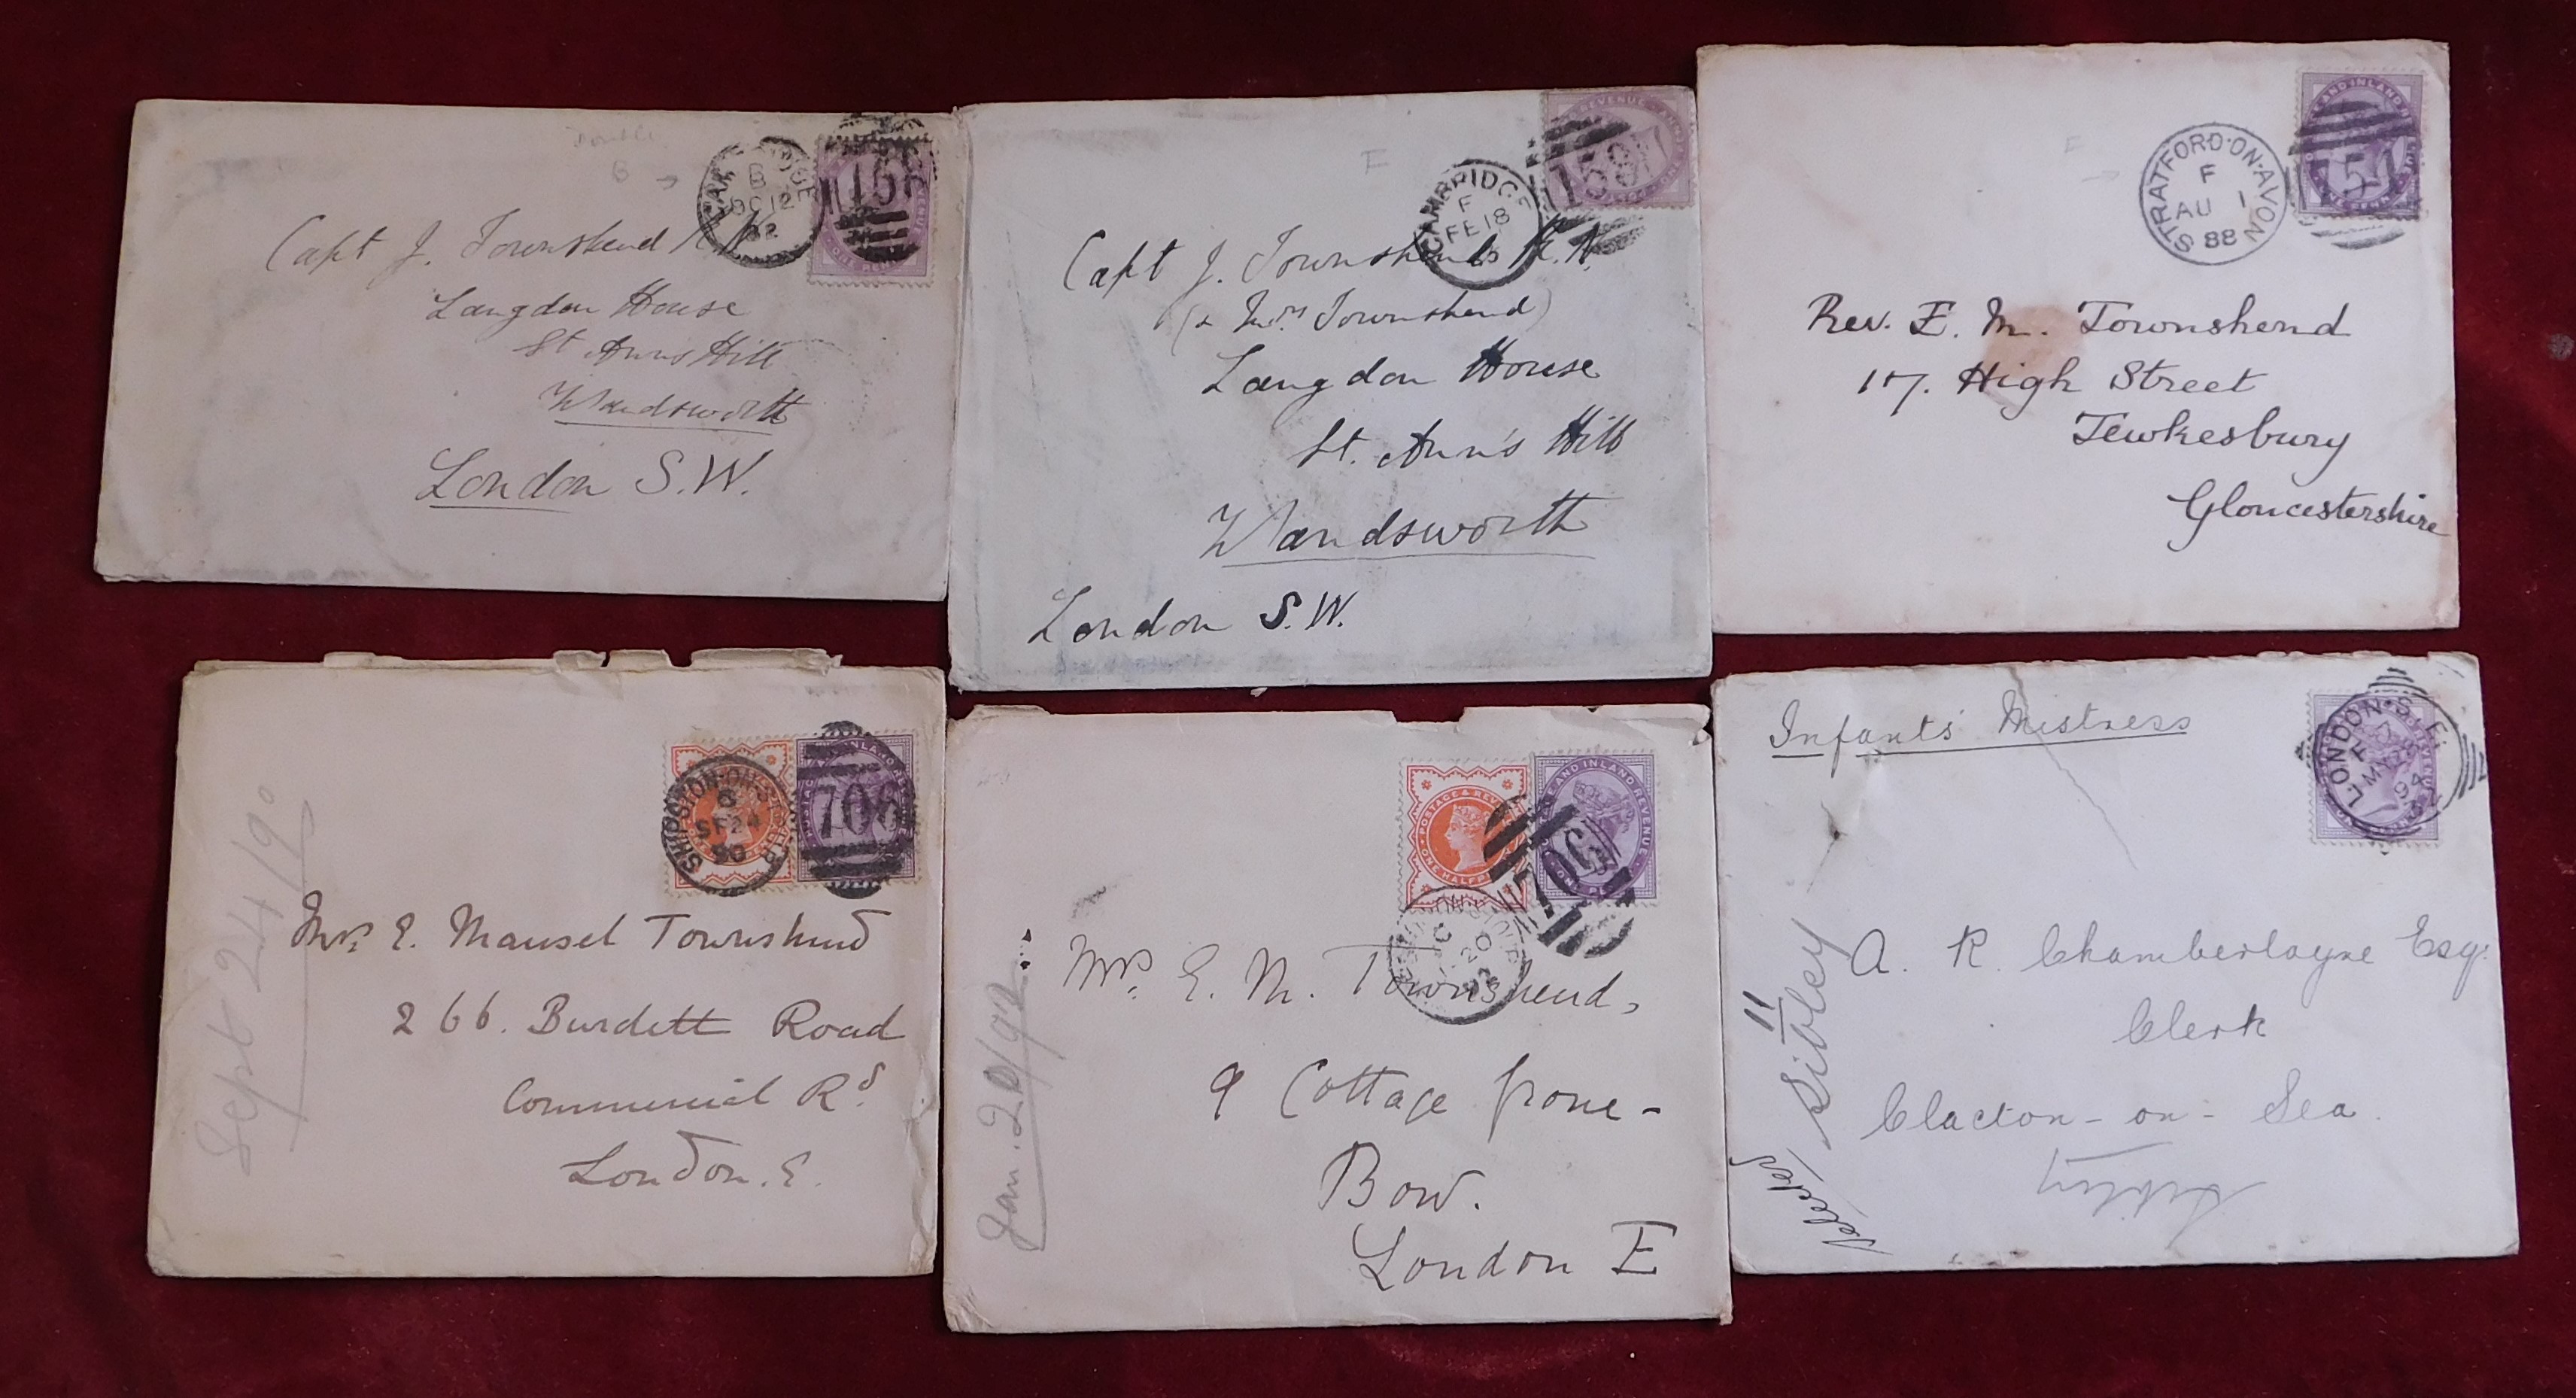 B
OC 12
82
158
Capt J. Townshend R.N.
Langdon House
St Ann's Hill
Wandsworth
London S.W.
F
REVENUE
CAMBRIDGE
F
FE 18
158
Capt J. Townshend R.N.
(& Mrs Townshend)
Langdon House
St. Ann's Hill
Wandsworth
London S.W.
AND INLAND
STRATFORD-ON-AVON
F
AU 1
88
Rev. E. M. Townshend
17. High Street
Tewkesbury
Gloucestershire
SHIPSTON-ON-STOUR
SP 24
90
706
Sept 24/90
Mrs E. Mansel Townshend
266. Burdett Road
Commercial Rd
London. E.
POSTAGE & REVENUE
ONE HALFPENNY
AND INLAND REVENUE
706
C
20
92
Jan. 20/92
Mrs E. M. Townshend,
9 Cottage Grove-
Bow.
London E
Infants' Mistress
LONDON. S.E.
MY 28
94
A. R. Chamberlayne Esq.
Clerk
Clacton-on-Sea.
Selected
Sibley
11
Sibley